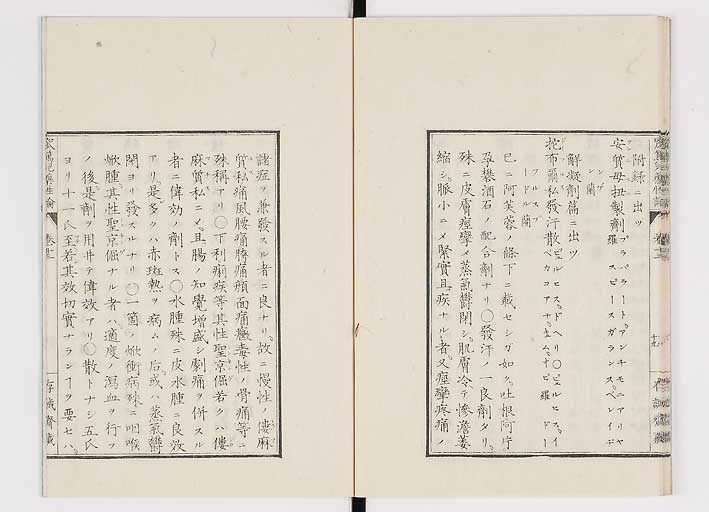 附録ニ出ツ
安質母扭製劑 プラパラート、アンチモニアリヤ 羅 スピースガランス、プレイギ
ング 蘭
解凝劑篇ニ出ツ
托布爾私發汗散
フルスプ
ードル 蘭
已ニ阿芙蓉ノ條下ニ載セシガ如ク吐根阿片
孕礬酒石ノ配合劑ナリ○發汗ノ一良劑タリ
殊ニ皮膚痙攣メ蒸氣欝閉シ肌膚冷テ惨澹萎
縮シ脈小ニメ緊實且疾ナル者又痙攣疼痛ノ
諸症ヲ兼發スル者ニ良ナリ故ニ慢性ノ僂麻
質私痛風腰痛胯痛顔面痛黴毒性ノ骨痛等ニ
殊稱アリ○下利痢疾等其性聖京偓若クハ僂
麻質私ニメ且腸ノ知覺增盛シ劇痛ヲ併スル
者ニ偉効ノ劑トス○水腫殊ニ皮水腫ニ良效
アリ是多クハ赤斑熱ヲ病ムノ后或ハ蒸氣欝
閉ヨリ發スルナリ○一箇ノ焮衝病殊ニ咽喉
焮腫其性聖京偓ナル者ハ適度ノ瀉血ヲ行フ
ノ後是劑ヲ用井テ偉效アリ○散トナシ五氏
ヨリ十一氏ニ至ル若其效切實ナランヿヲ要セハ